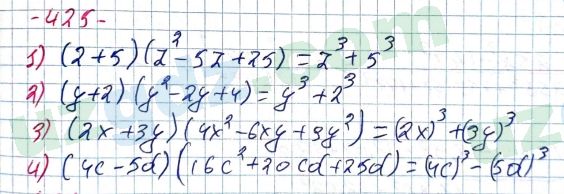 -425-
1) (2+5)(z²-5z+25)=z³+5³
2) (y+2)(y²-2y+4)=y³+2³
3) (2x+3y)(4x²-6xy+9y²)=(2x)³+(3y)³
4) (4c-5d)(16c²+20cd+25d)=(4c)³-(5d)³